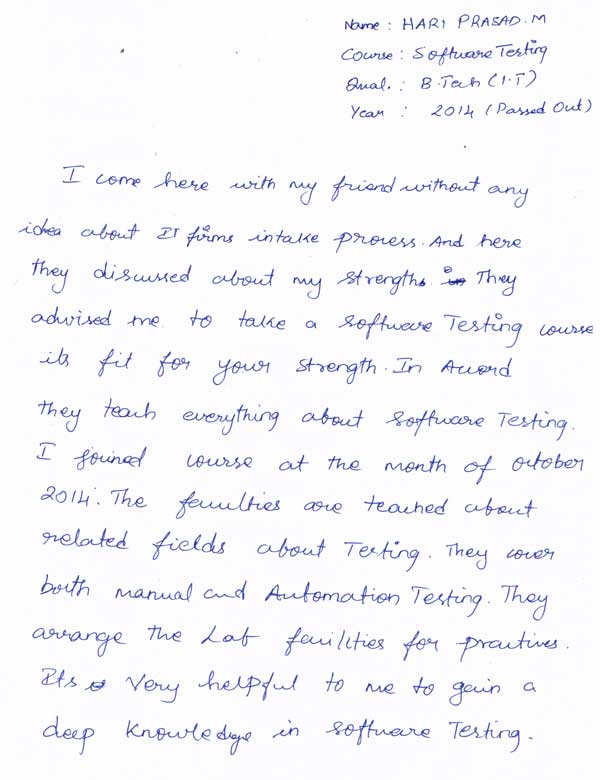 Name : HARI PRASAD.M
Course : Software Testing
Qual. : B.Tech (I.T)
Year : 2014 (Passed Out)
I come here with my friend without any
idea about IT firms intake process. And here
they discussed about my strengths. They
advised me to take a software Testing course
its fit for your strength. In Accord
they teach everything about software Testing.
I joined course at the month of october
2014. The faculties are teached about
related fields about Testing. They cover
both manual and Automation Testing. They
arrange the Lab facilities for practives.
Its very helpful to me to gain a
deep knowledge in software Testing.